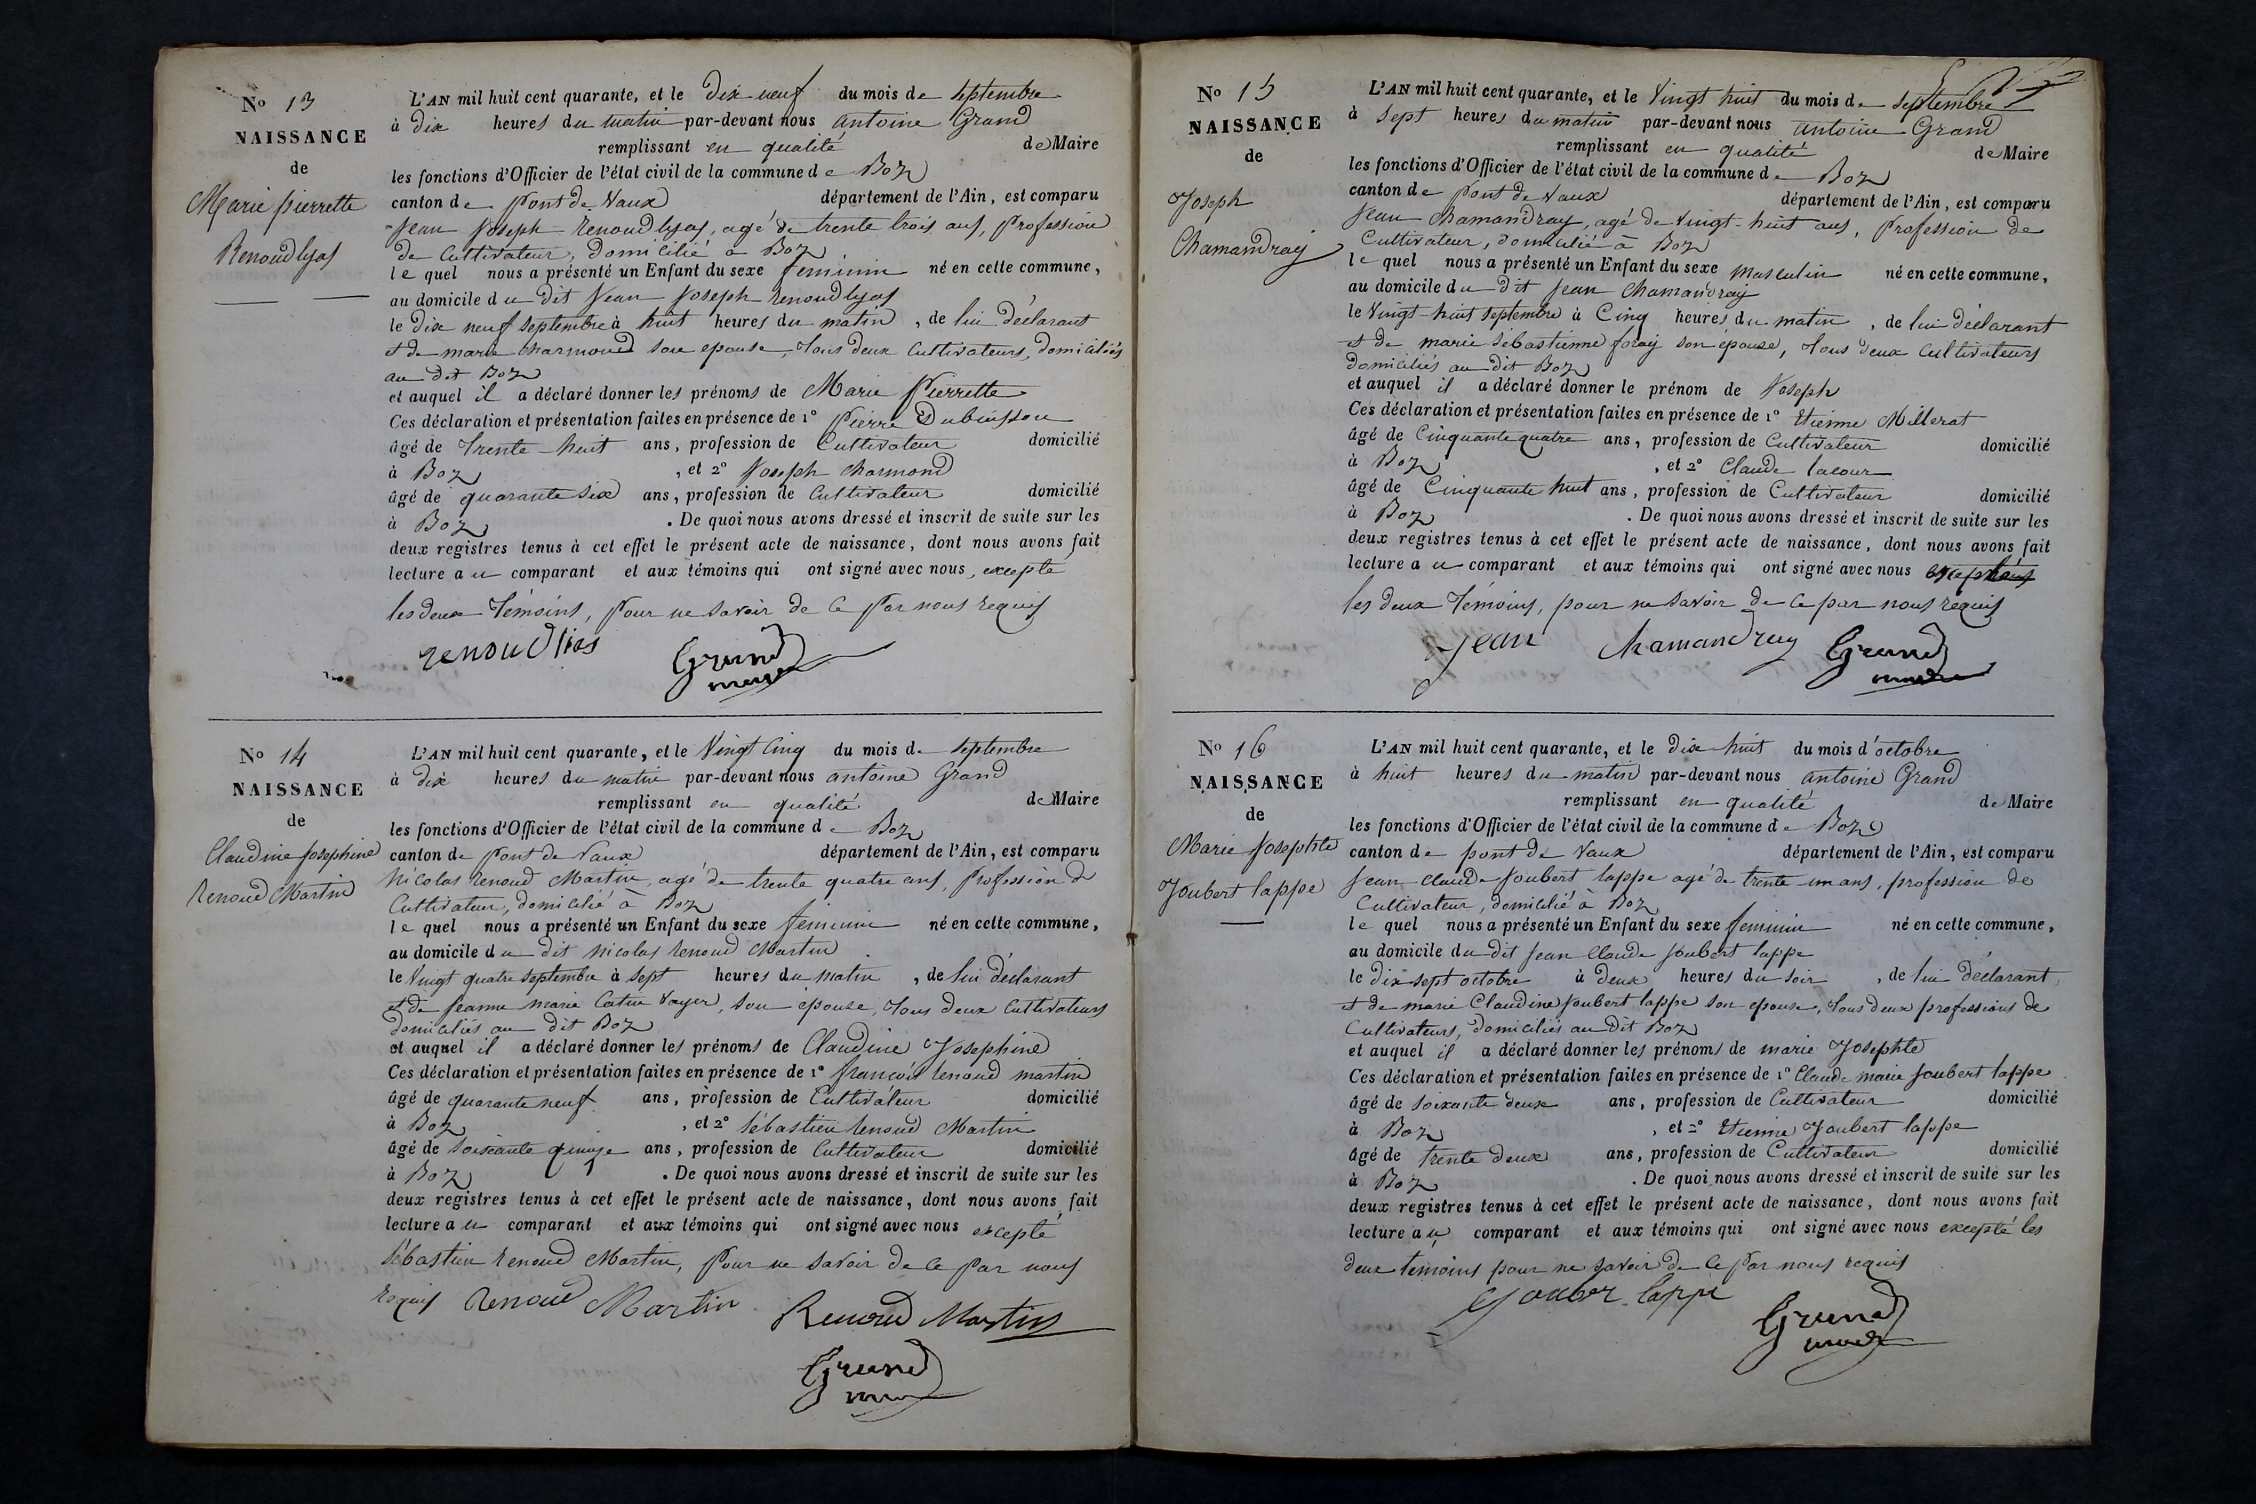 No 13
NAISSANCE
de
Marie pierrette
Renoudlyas
L'AN mil huit cent quarante, et le Dix neuf du mois de septembre
à dix heures du matin par-devant nous antoine Grand
remplissant en qualité de Maire
les fonctions d'Officier de l'état civil de la commune de Boz
canton de Pont de Vaux département de l'Ain, est comparu
Jean Joseph renoudlyas, agé de trente trois ans, Profession
de Cultivateur, domicilié à Boz
lequel nous a présenté un Enfant du sexe feminin né en cette commune,
au domicile du dit Jean Joseph renoudlyas
le Dix neuf septembre à huit heures du matin, de lui déclarant
et de marie charmond son epouse, tous deux Cultivateurs, domiciliés
au dit Boz
et auquel il a déclaré donner les prénoms de Marie Pierrette
Ces déclaration et présentation faites en présence de 1° Pierre Dubuisson
âgé de trente-huit ans, profession de Cultivateur domicilié
à Boz, et 2° Joseph charmond
âgé de quarante six ans, profession de Cultivateur domicilié
à Boz. De quoi nous avons dressé et inscrit de suite sur les
deux registres tenus à cet effet le présent acte de naissance, dont nous avons fait
lecture au comparant et aux témoins qui ont signé avec nous, excepté
les deux témoins, pour ne savoir de ce par nous requis
renoudlias Grand
maire
No 14
NAISSANCE
de
Claudine Josephine
Renoud Martin
L'AN mil huit cent quarante, et le Vingt cinq du mois de septembre
à dix heures du matin par-devant nous antoine Grand
remplissant en qualité de Maire
les fonctions d'Officier de l'état civil de la commune de Boz
canton de Pont de Vaux département de l'Ain, est comparu
Nicolas renoud Martin, agé de trente quatre ans, profession d
Cultivateur, domicilié à Boz
lequel nous a présenté un Enfant du sexe feminin né en cette commune,
au domicile du dit Nicolas renoud Martin
le Vingt quatre septembre à sept heures du matin, de lui déclarant
et de Jeanne marie Catin Vayer, son epouse, tous deux Cultivateurs
domiciliés au dit Boz
et auquel il a déclaré donner les prénoms de Claudine Josephine
Ces déclaration et présentation faites en présence de 1° françois renoud martin
âgé de quarante neuf ans, profession de Cultivateur domicilié
à Boz, et 2° sébastien renoud Martin
âgé de soixante quinze ans, profession de Cultivateur domicilié
à Boz. De quoi nous avons dressé et inscrit de suite sur les
deux registres tenus à cet effet le présent acte de naissance, dont nous avons fait
lecture au comparant et aux témoins qui ont signé avec nous excepté
sébastien renoud Martin, pour ne savoir de ce par nous
requis renoud Martin Renoud Martin
Grand
No 15
NAISSANCE
de
Joseph
Chamandray
L'AN mil huit cent quarante, et le Vingt huit du mois de septembre
à sept heures du matin par-devant nous antoine Grand
remplissant en qualité de Maire
les fonctions d'Officier de l'état civil de la commune de Boz
canton de Pont de Vaux département de l'Ain, est comparu
Jean chamandray, agé de vingt-huit ans, Profession de
Cultivateur, domicilié à Boz
lequel nous a présenté un Enfant du sexe masculin né en cette commune,
au domicile du dit Jean chamandray
le vingt-huit septembre à Cinq heures du matin, de lui déclarant
et de marie sébastienne foray son épouse, tous deux Cultivateurs
domiciliés au dit Boz
et auquel il a déclaré donner le prénom de Joseph
Ces déclaration et présentation faites en présence de 1° Etienne Millerat
âgé de Cinquante quatre ans, profession de Cultivateur domicilié
à Boz, et 2° Claude lacour
âgé de Cinquante huit ans, profession de Cultivateur domicilié
à Boz. De quoi nous avons dressé et inscrit de suite sur les
deux registres tenus à cet effet le présent acte de naissance, dont nous avons fait
lecture au comparant et aux témoins qui ont signé avec nous
les deux témoins, pour ne savoir de ce par nous requis
Jean chamandray Grand
No 16
NAISSANCE
de
Marie Josephte
Joubert lappe
L'AN mil huit cent quarante, et le dix huit du mois d'octobre
à huit heures du matin par-devant nous antoine Grand
remplissant en qualité de Maire
les fonctions d'Officier de l'état civil de la commune de Boz
canton de pont de Vaux département de l'Ain, est comparu
Jean claude Joubert lappe agé de trente un ans, profession de
Cultivateur, domicilié à Boz
lequel nous a présenté un Enfant du sexe feminin né en cette commune,
au domicile du dit Jean Claude Joubert lappe
le dix sept octobre à deux heures du soir, de lui déclarant
et de marie Claudine Joubert lappe son epouse, tous deux professions de
Cultivateurs, domiciliés au dit Boz
et auquel il a déclaré donner les prénoms de marie Josephte
Ces déclaration et présentation faites en présence de 1° Claude marie Joubert lappe
âgé de soixante deux ans, profession de Cultivateur domicilié
à Boz, et 2° Etienne Joubert lappe
âgé de trente deux ans, profession de Cultivateur domicilié
à Boz. De quoi nous avons dressé et inscrit de suite sur les
deux registres tenus à cet effet le présent acte de naissance, dont nous avons fait
lecture au comparant et aux témoins qui ont signé avec nous excepté les
deux temoins pour ne savoir de ce par nous requis
Jouber lappe Grand